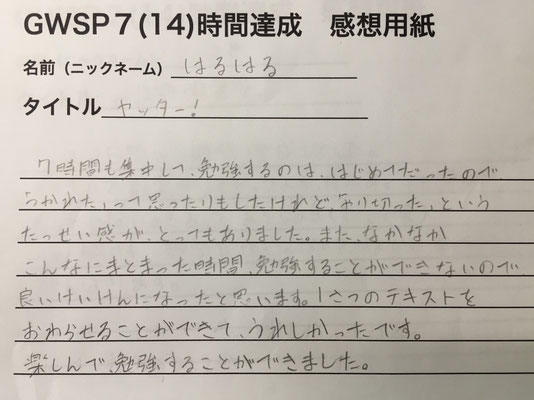 GWSP7(14)時間達成 感想用紙
名前(ニックネーム) はるはる
タイトル ヤッター!
7時間も集中して、勉強するのは、はじめてだったので
つかれた、って思ったりもしたけれど、やり切った、という
たっせい感が、とってもありました。また、なかなか
こんなにまとまった時間、勉強することができないので
良いけいけんになったと思います。1さつのテキストを
おわらせることができて、うれしかったです。
楽しんで、勉強することができました。